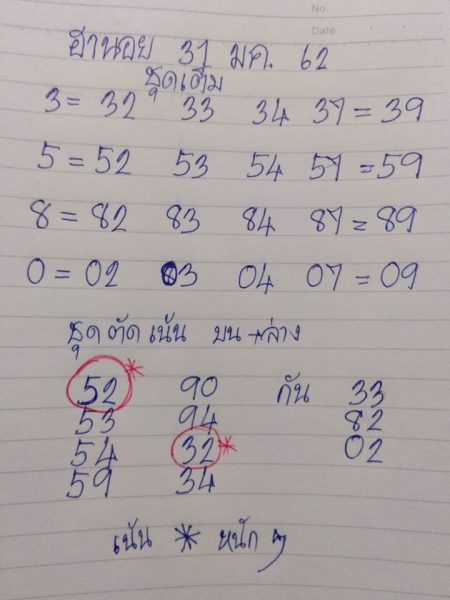 No.
Date
ฮานอย 31 มค. 62
ชุดเต็ม
3 = 32 33 34 37 = 39
5 = 52 53 54 57 = 59
8 = 82 83 84 87 = 89
0 = 02 03 04 07 = 09
ชุดตัดเน้น บน+ล่าง
52* 90 กัน 33
53 94 82
54 32* 02
59 34
เน้น * หนักๆ